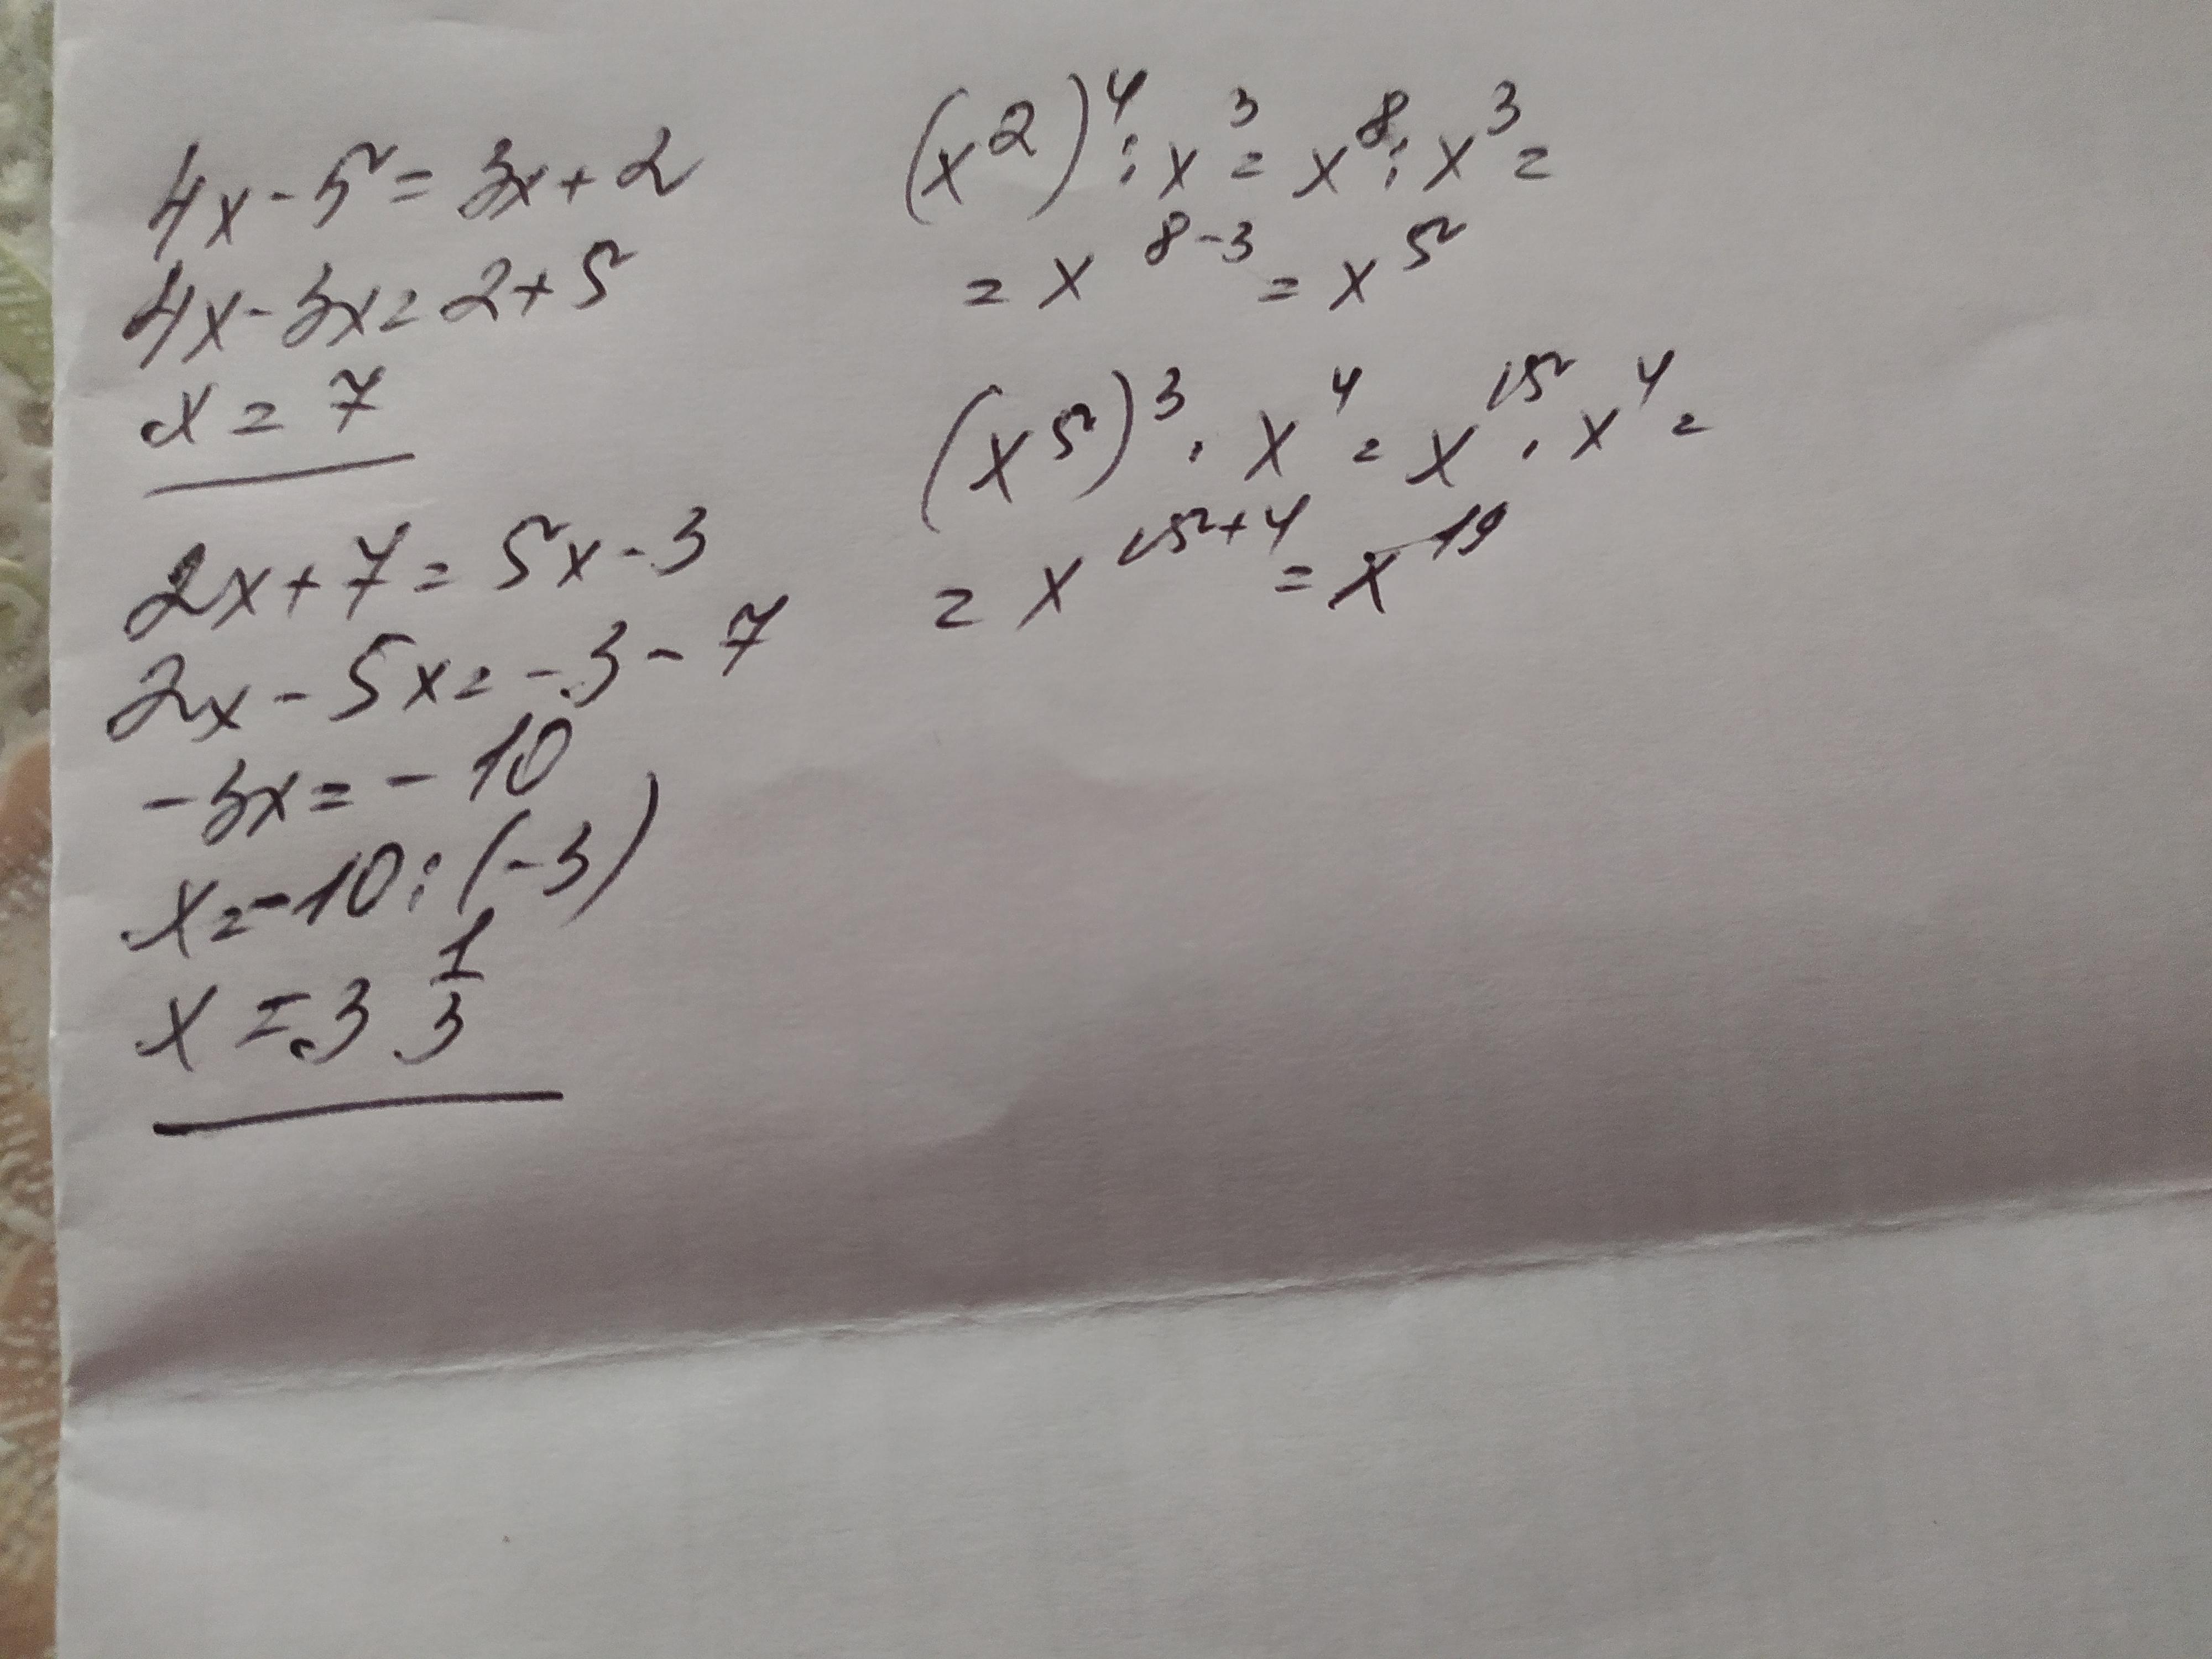 4x-5=3x+2
4x-3x=2+5
x=7
2x+7=5x-3
2x-5x=-3-7
-3x=-10
x=-10:(-3)
x=3 1/3
(x²)⁴:x³=x⁸:x³=
=x⁸⁻³=x⁵
(x⁵)³·x⁴=x¹⁵·x⁴=
=x¹⁵⁺⁴=x¹⁹